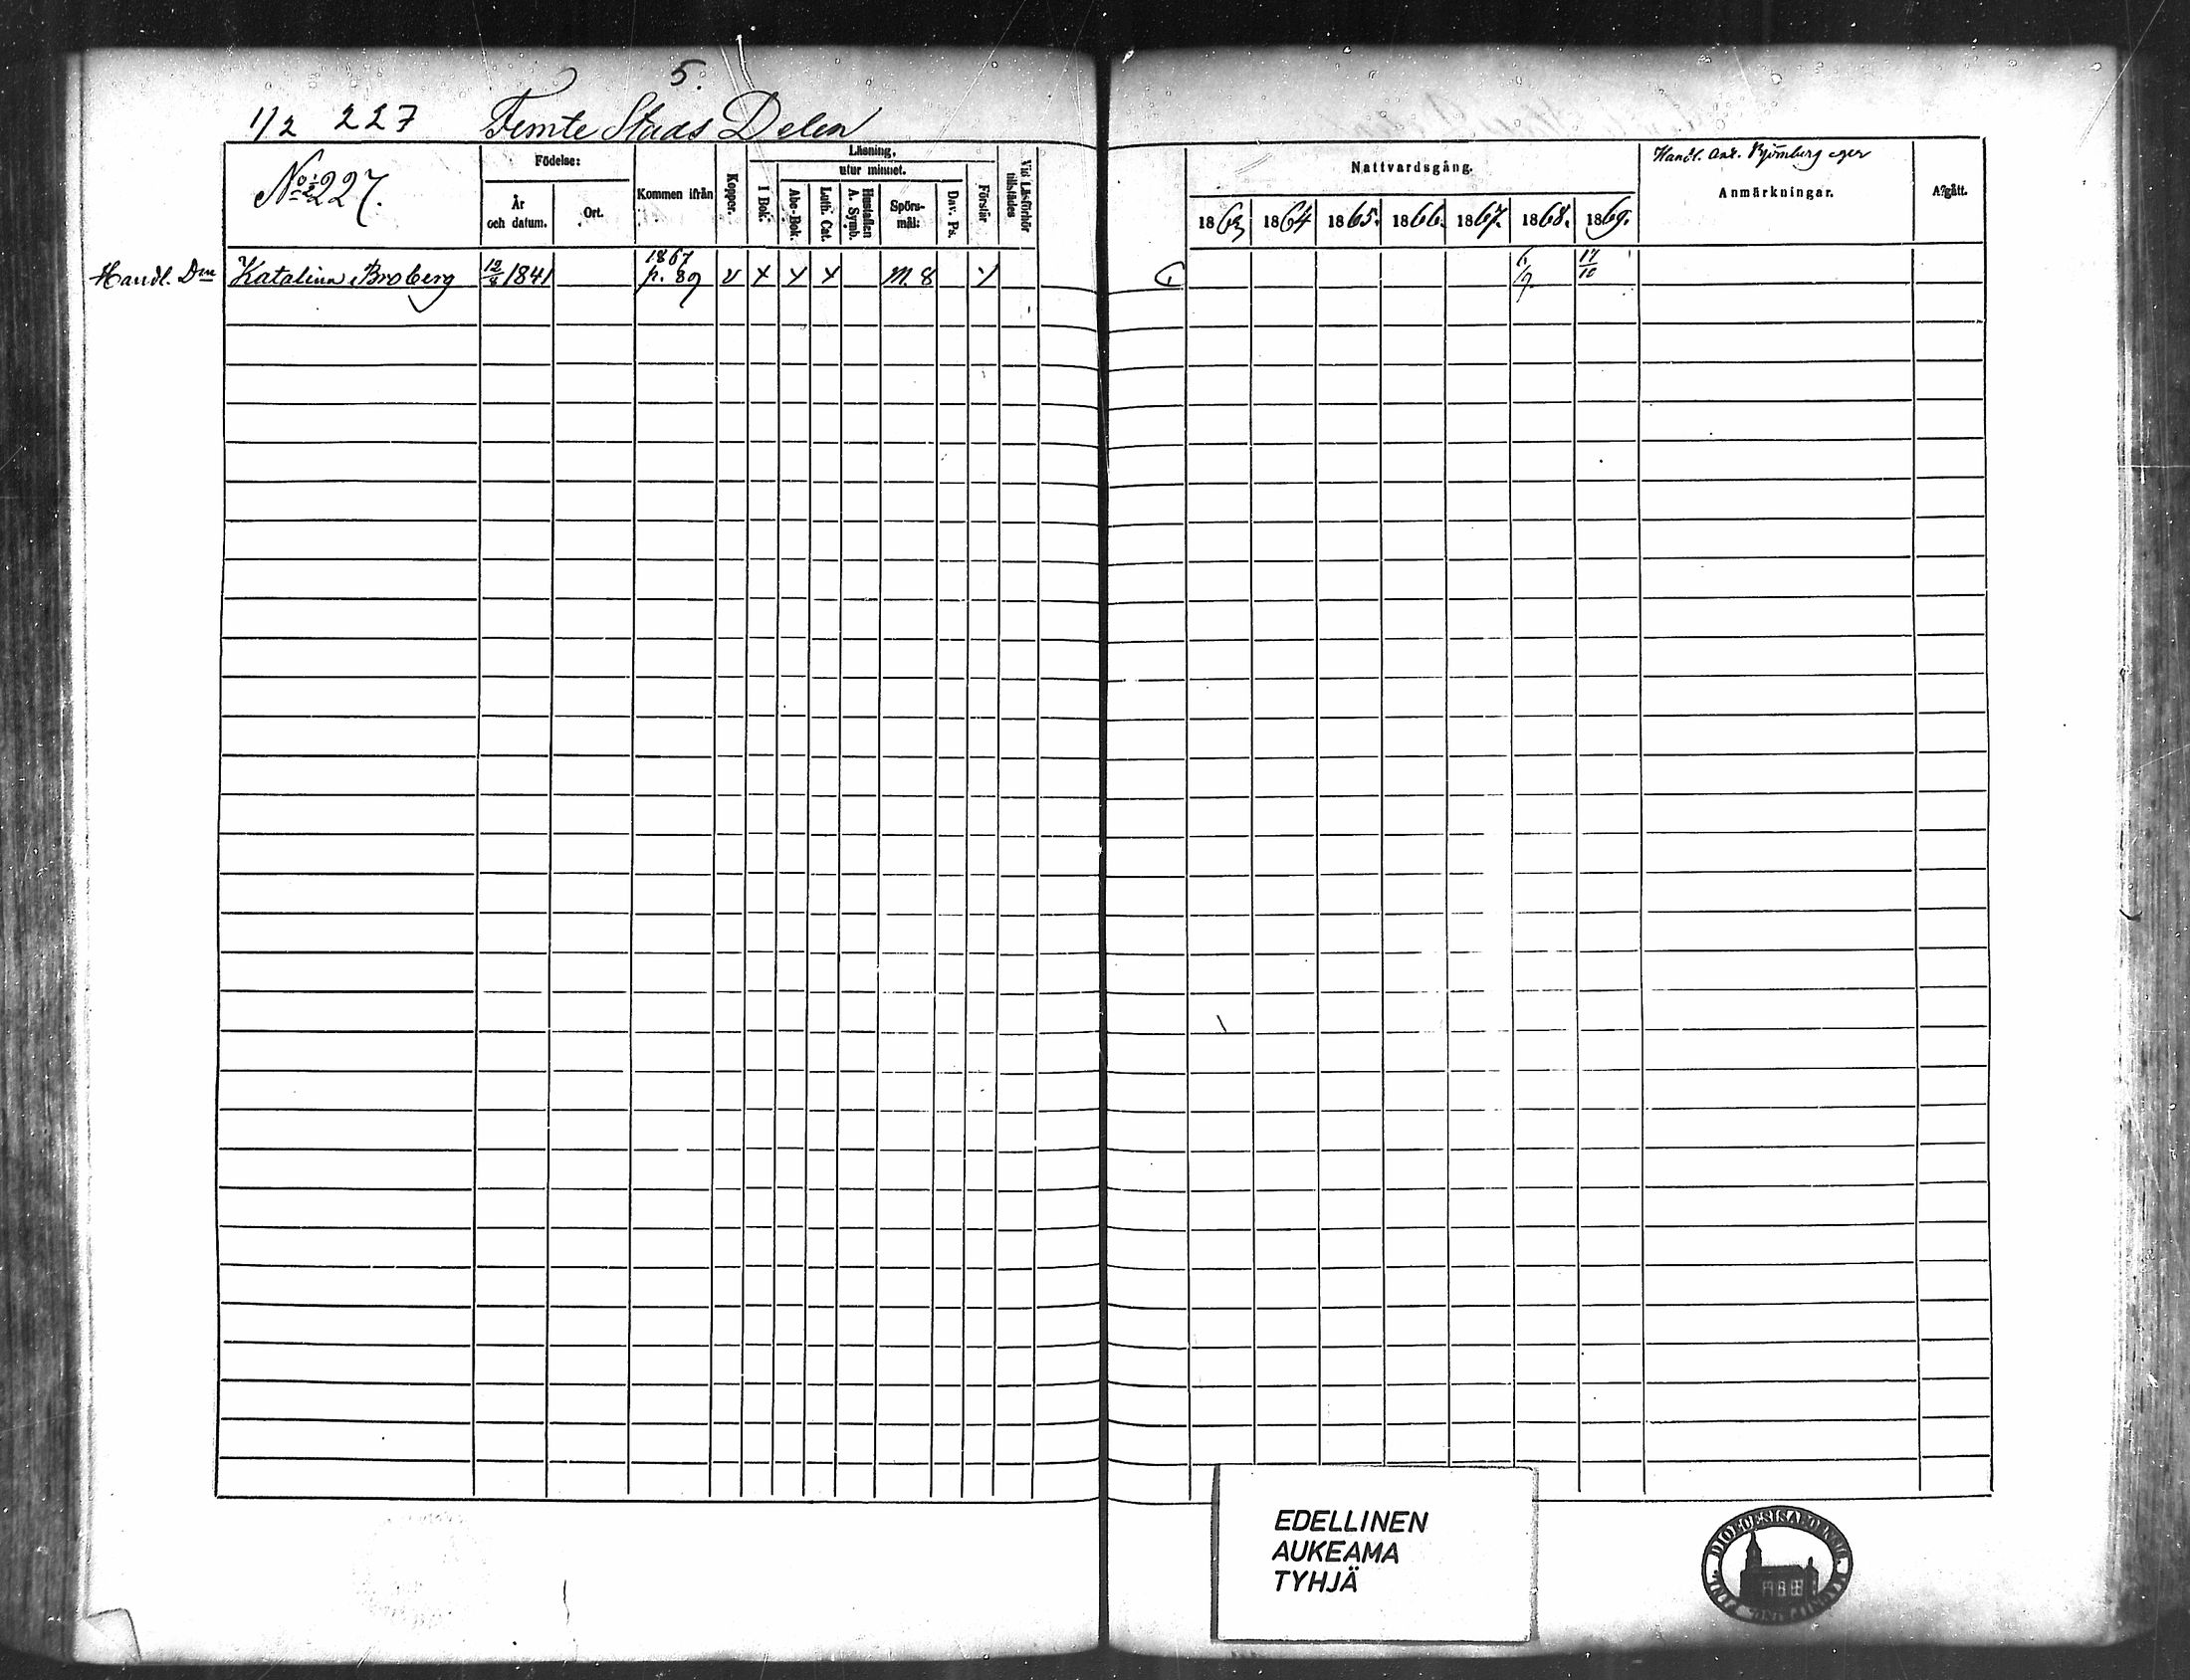 5.
1/2 227 Femte Stads Delen
No 1/2 227.
Födelse:
År
och datum.
Ort.
Kommen ifrån
Koppor.
Läsning,
utur minnet.
I Bok.
Abc-Bok.
Luth. Cat.
Hustaflan
A. Symb.
Spörs-
mål:
Dav. Ps.
Förstår
Vid Läsförhör
tillstädes
Nattvardsgång.
1863 1864 1865. 1866. 1867. 1868. 1869.
Handl. And. Björnberg eger
Anmärkningar.
Afgått.
Handl. Dm Katalina Broberg 12/8 1841 1867 p. 89 v x x x M. 8 x 6/9 17/10
EDELLINEN
AUKEAMA
TYHJÄ